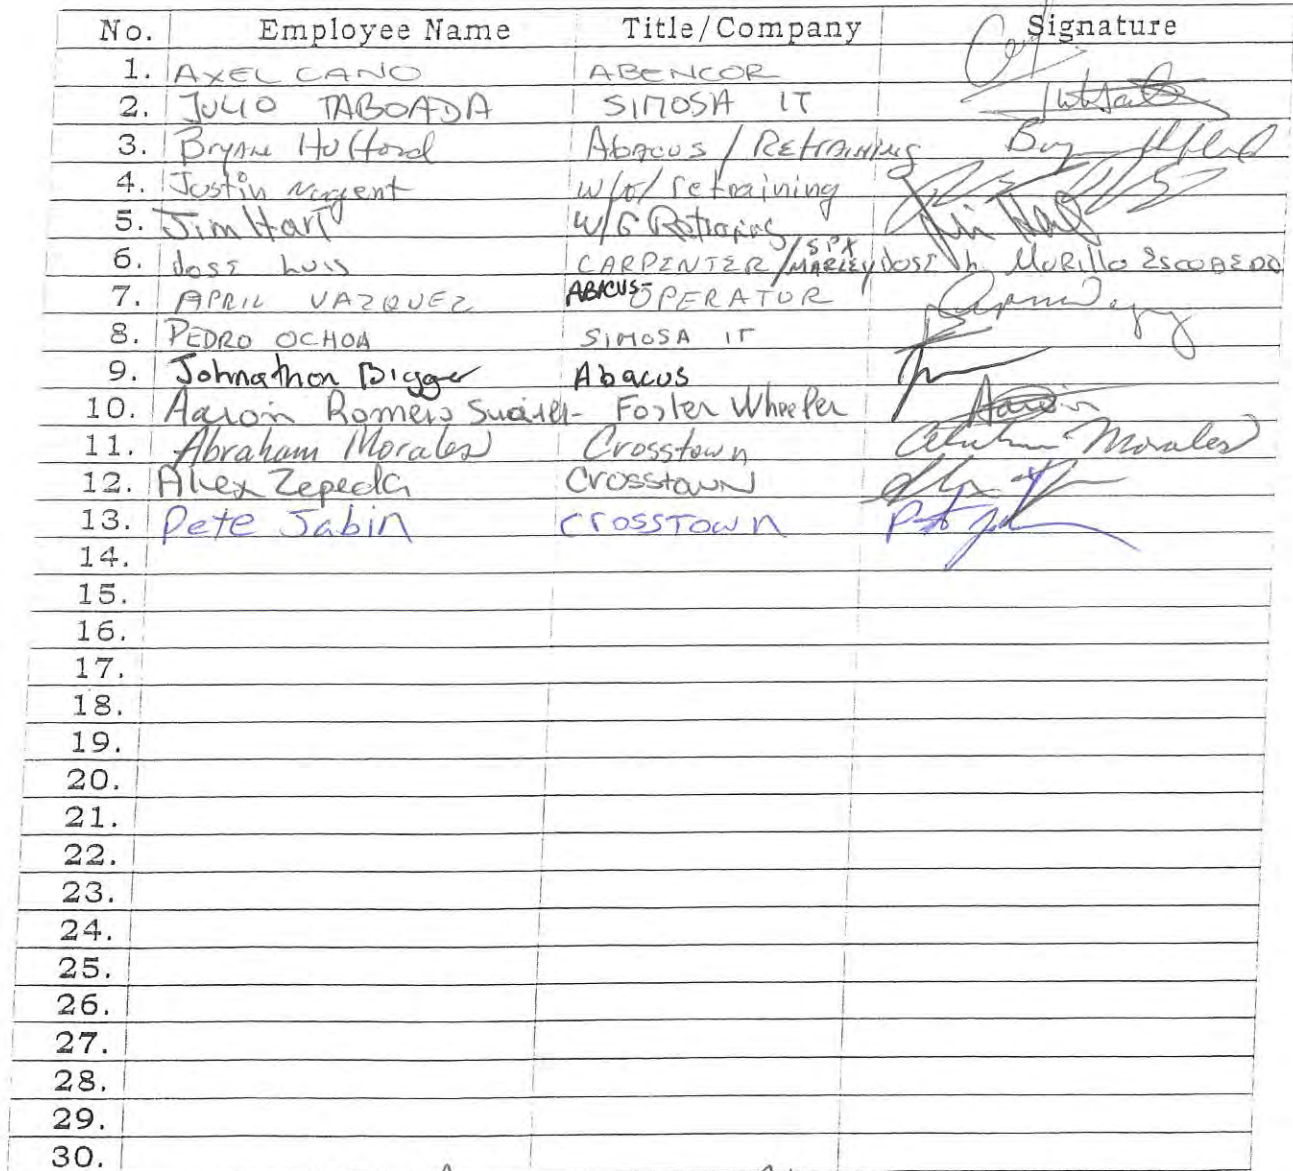 No. Employee Name Title/Company Signature
1. AXEL CANO ABENCOR
2. JULIO TABOADA SIMOSA IT
3. Bryan Hufford Abacus / Retraining
4. Justin Nugent w/o/ retraining
5. Jim Hart W/G Retraining Jim Hart
6. Jose Luis CARPENTER/SPX MARLEY JOSE L. MURILLO ESCOBEDO
7. APRIL VAZQUEZ ABACUS-OPERATOR
8. PEDRO OCHOA SIMOSA IT
9. Johnathon Bigger Abacus
10. Aaron Romero Foster Wheeler Aaron
11. Abraham Morales Crosstown Abraham Morales
12. Alex Zepeda Crosstown
13. Pete Jabin CrossTown
14.
15.
16.
17.
18.
19.
20.
21.
22.
23.
24.
25.
26.
27.
28.
29.
30.